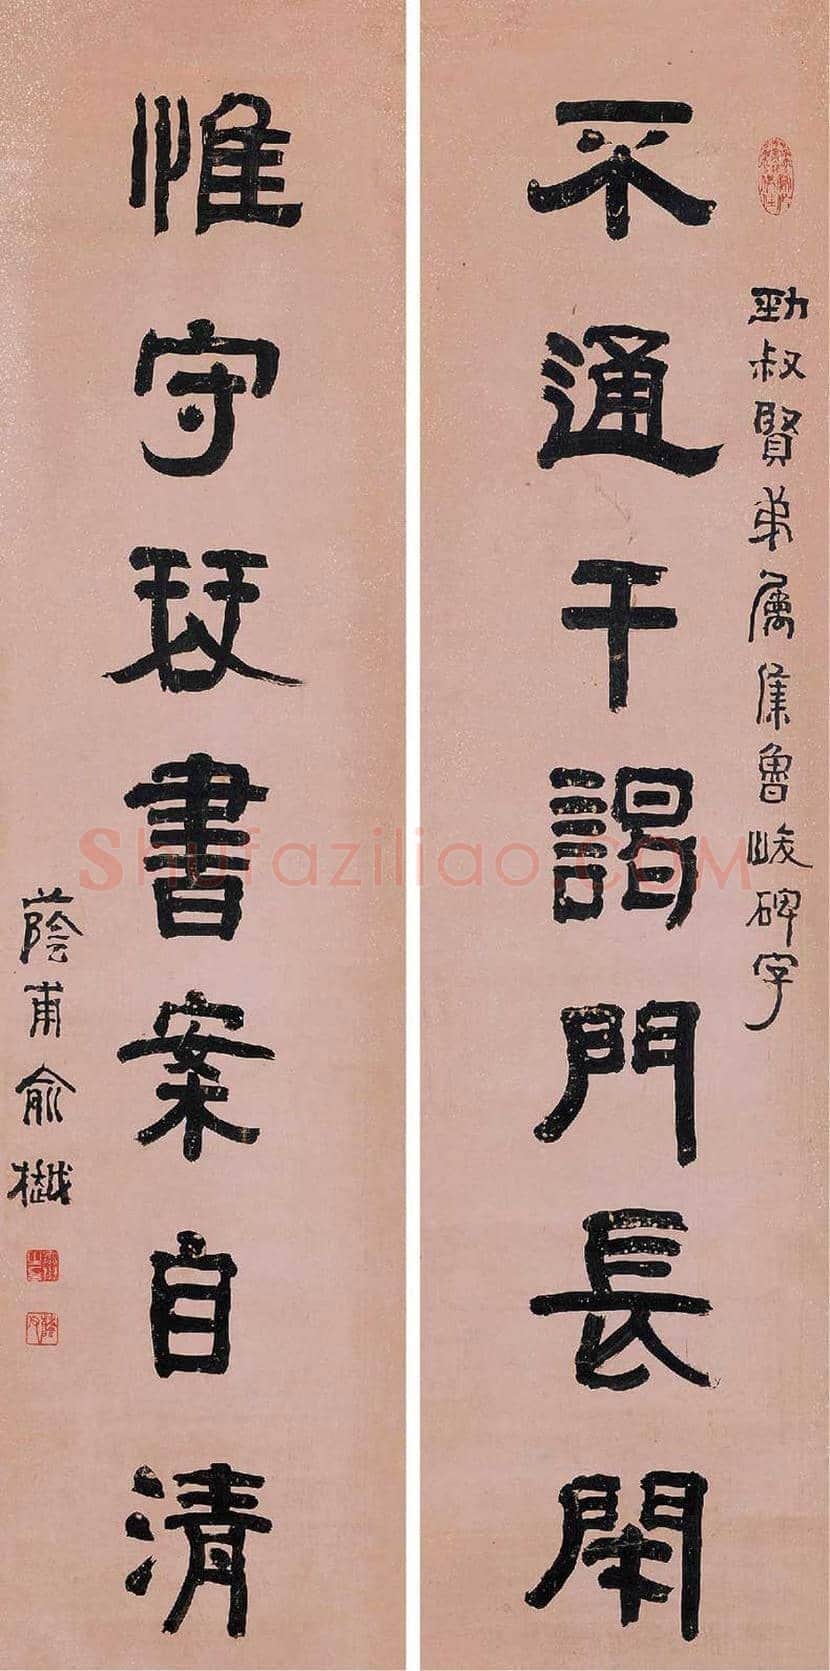 勁叔賢弟屬集魯峻碑字
不通干謁門長閉
惟守琴書案自清
蔭甫俞樾
shufaziliao.com